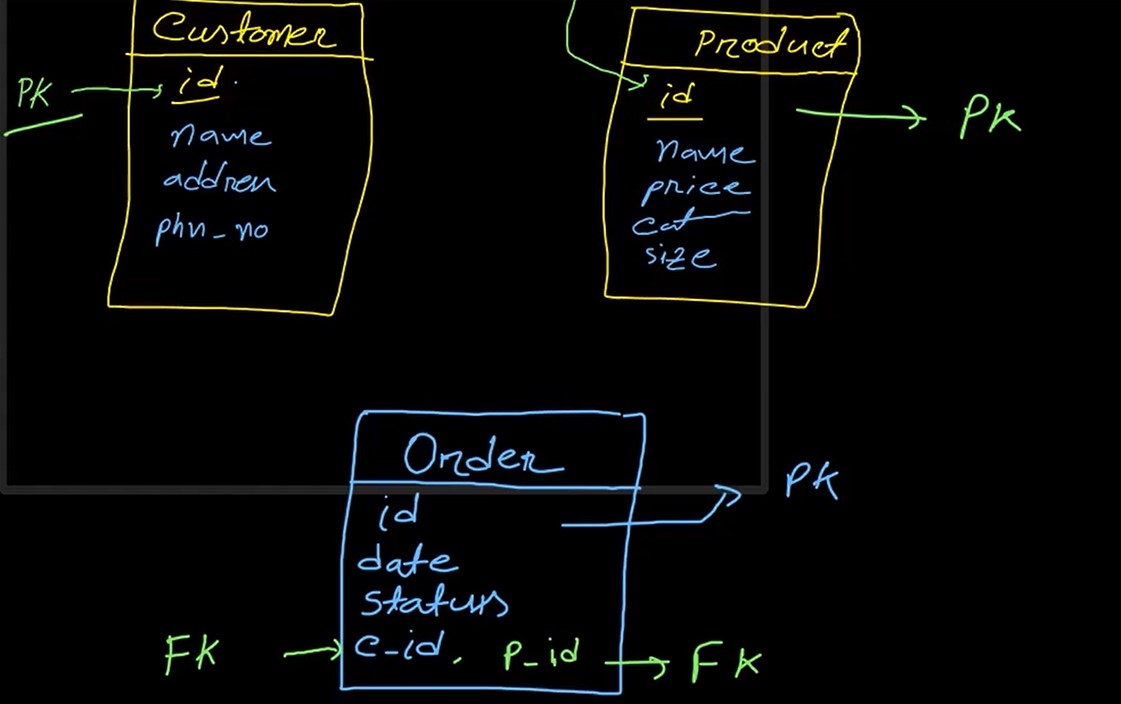 Customer
PK
id
name
address
phn_no
Product
id
PK
name
price
cat
size
Order
id
PK
date
status
FK
c_id, p_id
FK